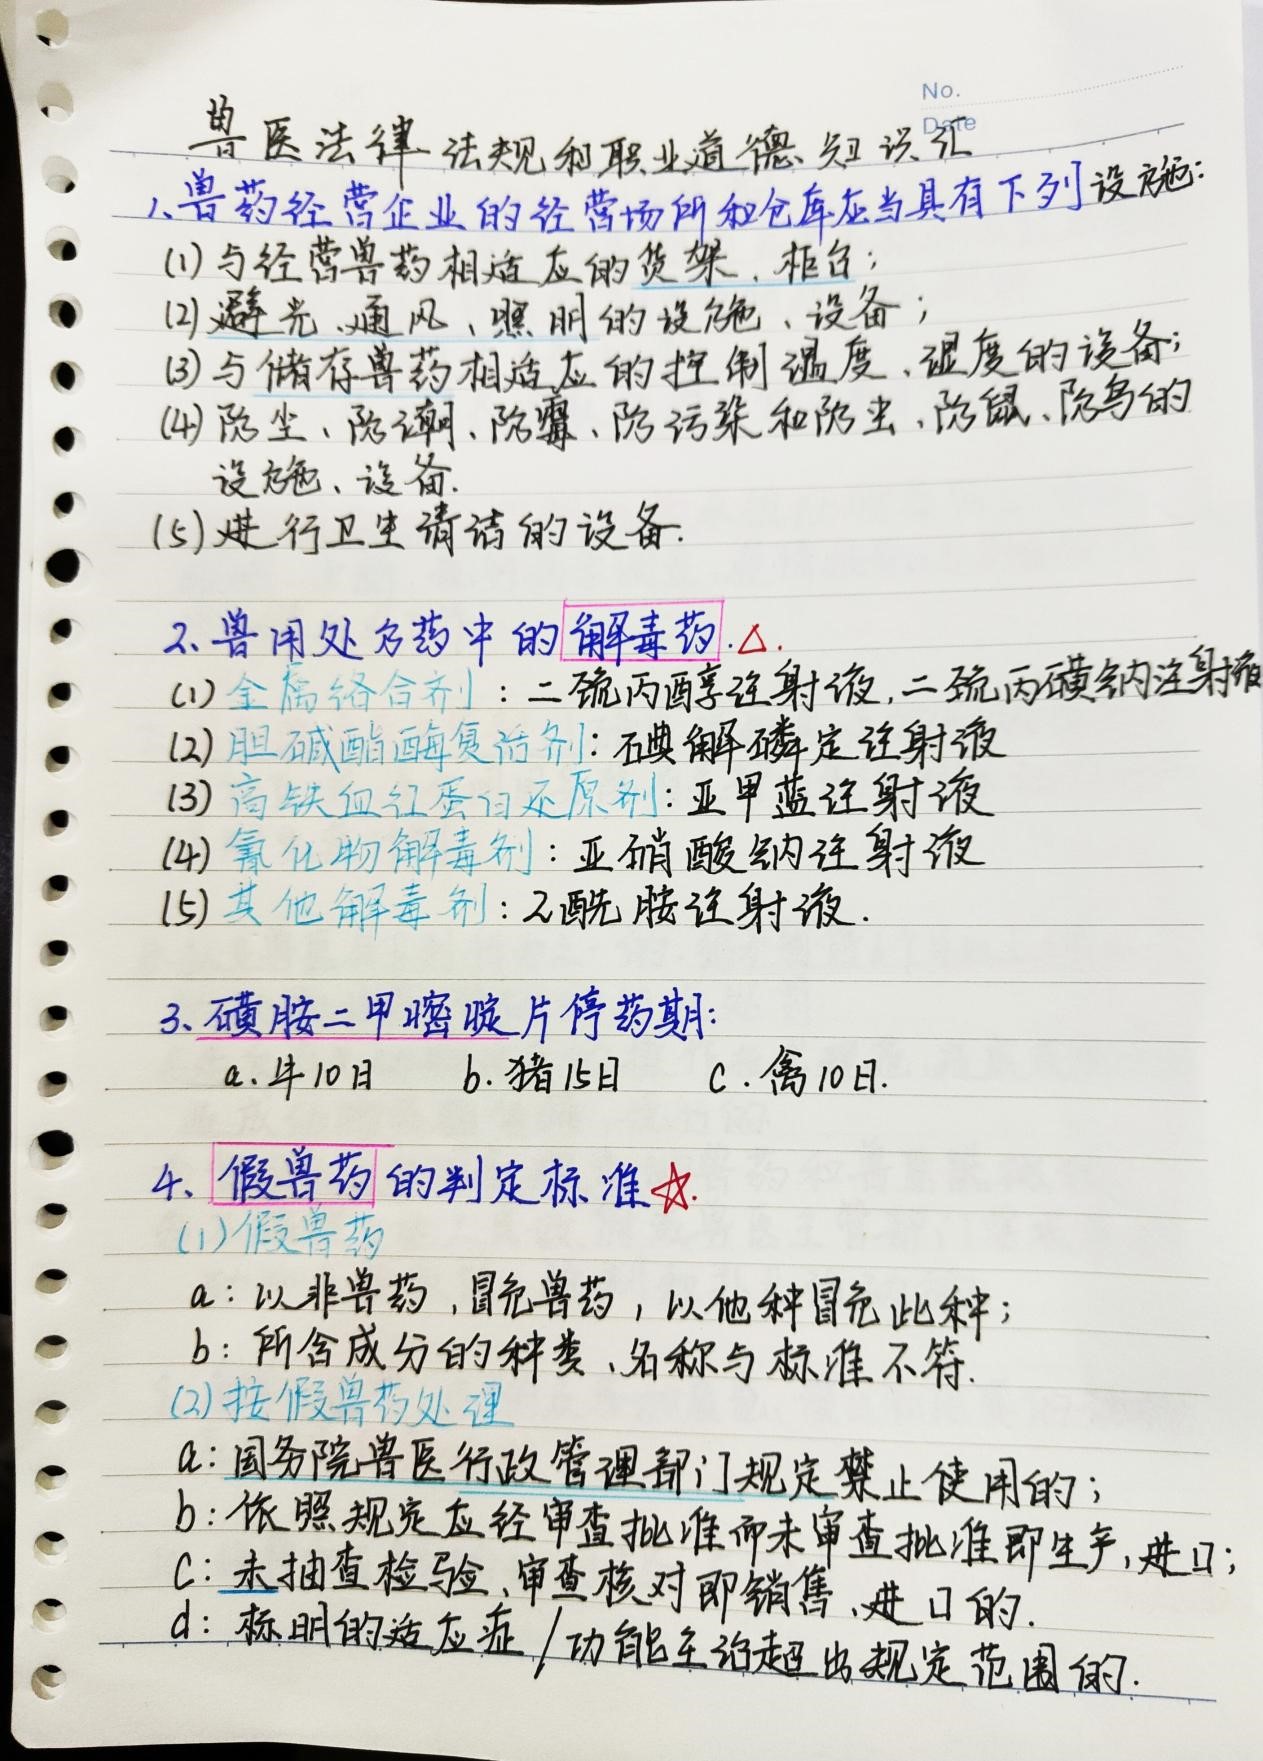 No.
Date
兽医法律法规和职业道德知识汇
1、兽药经营企业的经营场所和仓库应当具有下列设施:
(1)与经营兽药相适应的货架、柜台;
(2)避光、通风、照明的设施、设备;
(3)与储存兽药相适应的控制温度、湿度的设备;
(4)防尘、防潮、防霉、防污染和防虫、防鼠、防鸟的
设施、设备.
(5)进行卫生清洁的设备.
2、兽用处方药中的解毒药.△.
(1)金属络合剂:二巯丙醇注射液,二巯丙磺钠注射液
(2)胆碱酯酶复活剂:碘解磷定注射液
(3)高铁血红蛋白还原剂:亚甲蓝注射液
(4)氰化物解毒剂:亚硝酸钠注射液
(5)其他解毒剂:乙酰胺注射液.
3、磺胺二甲嘧啶片停药期:
a.牛10日 b.猪15日 c.禽10日.
4、假兽药的判定标准☆.
(1)假兽药
a:以非兽药,冒充兽药,以他种冒充此种;
b:所含成分的种类、名称与标准不符.
(2)按假兽药处理
a:国务院兽医行政管理部门规定禁止使用的;
b:依照规定应经审查批准而未审查批准即生产,进口;
c:未抽查检验、审查核对即销售、进口的.
d:标明的适应症/功能主治超出规定范围的.